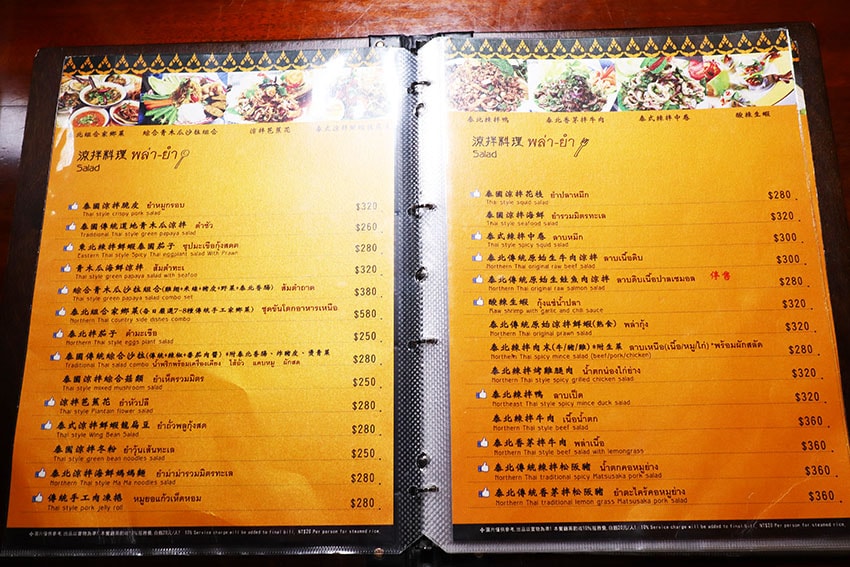 北組合家鄉菜 綜合青木瓜沙拉組合 涼拌芭蕉花
涼拌料理 พล่า-ยำ
Salad
泰國涼拌脆皮 ยำหมูกรอบ $320
Thai style crispy pork salad
泰國傳統道地青木瓜涼拌 ตำซั่ว $260
Traditional Thai style green papaya salad
東北辣拌鮮蝦泰國茄子 ซุปมะเขือกุ้งสด $280
Eastern Thai style Spicy Thai eggplant salad With Prawn
青木瓜海鮮涼拌 ส้มตำทะเล $320
Thai style green papaya salad with seafoo
綜合青木瓜沙拉組合(雞翅+米線+豬皮+野菜+泰北香腸) ส้มตำถาด $380
Thai style green papaya salad combo set
泰北組合家鄉菜 ชุดขันโตกอาหารเหนือ $580
Northern Thai country side dishes combo
泰北拌茄子 ตำมะเขือ $250
Northern Thai style eggs plant salad
泰國傳統綜合沙拉
Traditional Thai salad combo น้ำพริกพร้อมเครื่องเคียง ไส้อั่ว แคบหมู ผักสด $280
泰國涼拌綜合菇類 ยำเห็ดรวมมิตร $250
Thai style mixed mushroom salad
涼拌芭蕉花 ยำหัวปลี $280
Thai style Plantain flower salad
泰式涼拌鮮蝦龍扁豆 ยำถั่วพลูกุ้งสด $280
Thai style Wing Bean Salad
泰國涼拌冬粉 ยำวุ้นเส้นทะเล $250
Thai style green bean noodles salad
泰北涼拌海鮮媽媽麵 ยำม่าม่ารวมมิตรทะเล $280
Northern Thai style Ma Ma noodles salad
傳統手工肉凍捲 หมูยอแก้วเห็ดหอม $280
Thai style pork jelly roll
10% Service charge will be added to final bill, NT$20 Per person for steamed rice.
泰北辣拌鴨 泰北香茅拌牛肉 泰式辣拌中卷 酸辣生蝦
涼拌料理 พล่า-ยำ
Salad
泰國涼拌花枝 ยำปลาหมึก $280
Thai style squid salad
泰國涼拌海鮮 ยำรวมมิตรทะเล $320
Thai style seafood salad
泰式辣拌中卷 ลาบหมึก $300
Thai style spicy squid salad
泰北傳統原始生牛肉涼拌 ลาบเนื้อดิบ $300
Northern Thai original raw beef salad
泰北傳統原始生鮭魚肉涼拌 ลาบดิบเนื้อปลาแซลมอล 停售 $280
Northern Thai original raw salmon salad
酸辣生蝦 กุ้งแช่น้ำปลา $320
Raw shrimp with garlic and chili sauce
泰北傳統原始涼拌鮮蝦(熟食) พล่ากุ้ง $320
Northern Thai original prawn salad
泰北辣拌肉末(牛/豬/雞)+附生菜 ลาบเหนือ(เนื้อ/หมู/ไก่) *พร้อมผักสลัด $280
Northern Thai style spicy mince salad (beef/pork/chicken)
泰北辣拌烤雞腿肉 น้ำตกน่องไก่ย่าง $320
Northern Thai style spicy grilled chicken salad
泰北辣拌鴨 ลาบเป็ด $320
Northeast Thai style spicy mince duck salad
泰北辣拌牛肉 เนื้อน้ำตก $360
Northern Thai style beef salad
泰北香茅拌牛肉 พล่าเนื้อ $360
Northern Thai style beef salad with lemongrass
泰北傳統辣拌松阪豬 น้ำตกคอหมูย่าง $360
Northern Thai traditional spicy Matsusaka pork salad
泰北傳統香茅拌松阪豬 ยำตะไคร้คอหมูย่าง $360
Northern Thai traditional lemon grass Matsusaka pork salad
10% Service charge will be added to final bill, NT$20 Per person for steamed rice.